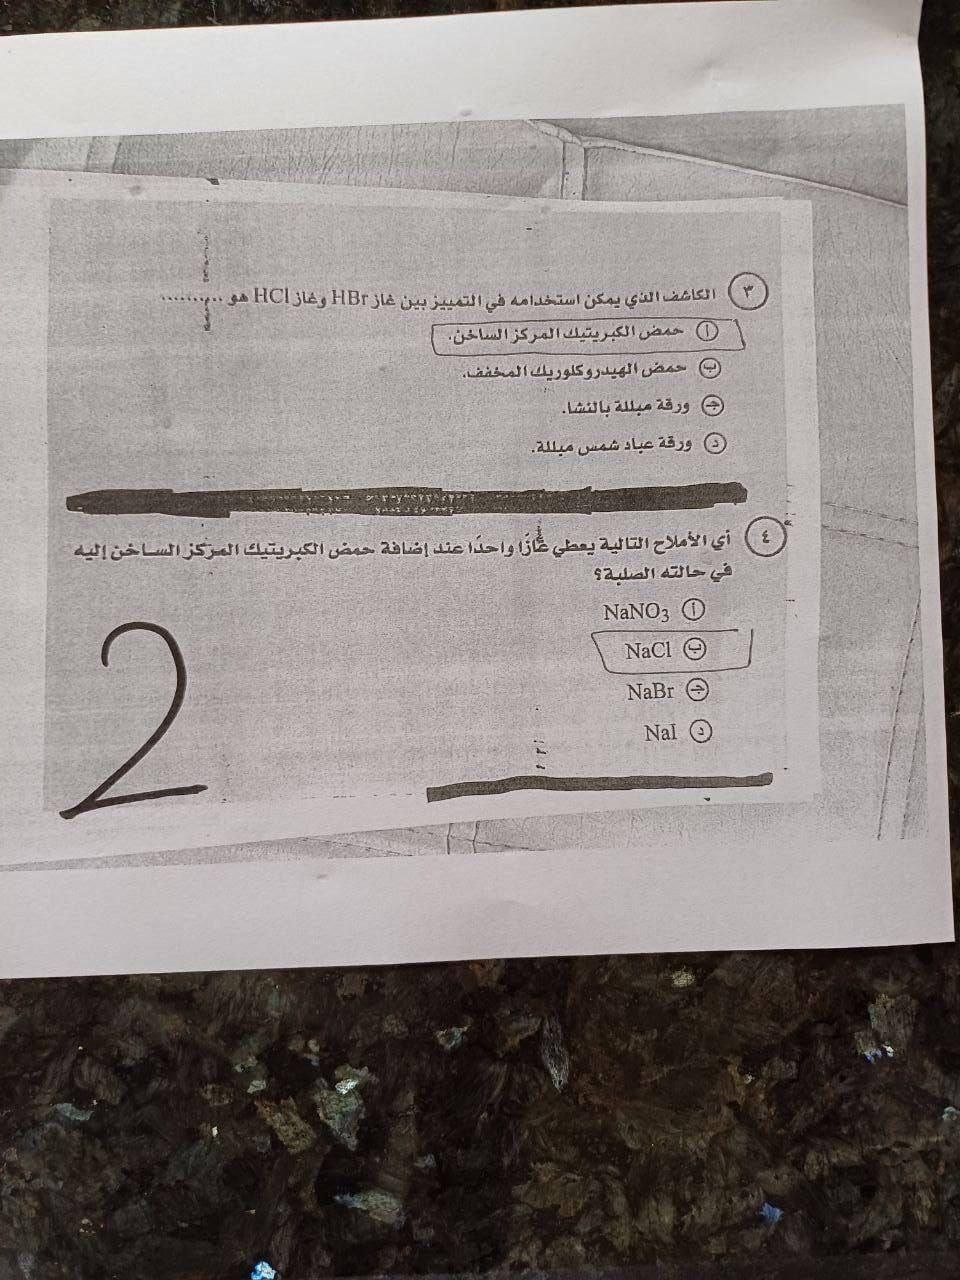 ٣ الكاشف الذي يمكن استخدامه في التمييز بين غاز HBr وغاز HCl هو ..........
أ حمض الكبريتيك المركز الساخن.
ب حمض الهيدروكلوريك المخفف.
ج ورقة مبللة بالنشا.
د ورقة عباد شمس مبللة.
٤ أي الأملاح التالية يعطي غازًا واحدًا عند إضافة حمض الكبريتيك المركز الساخن إليه
في حالته الصلبة؟
أ NaNO₃
ب NaCl
ج NaBr
د NaI
2